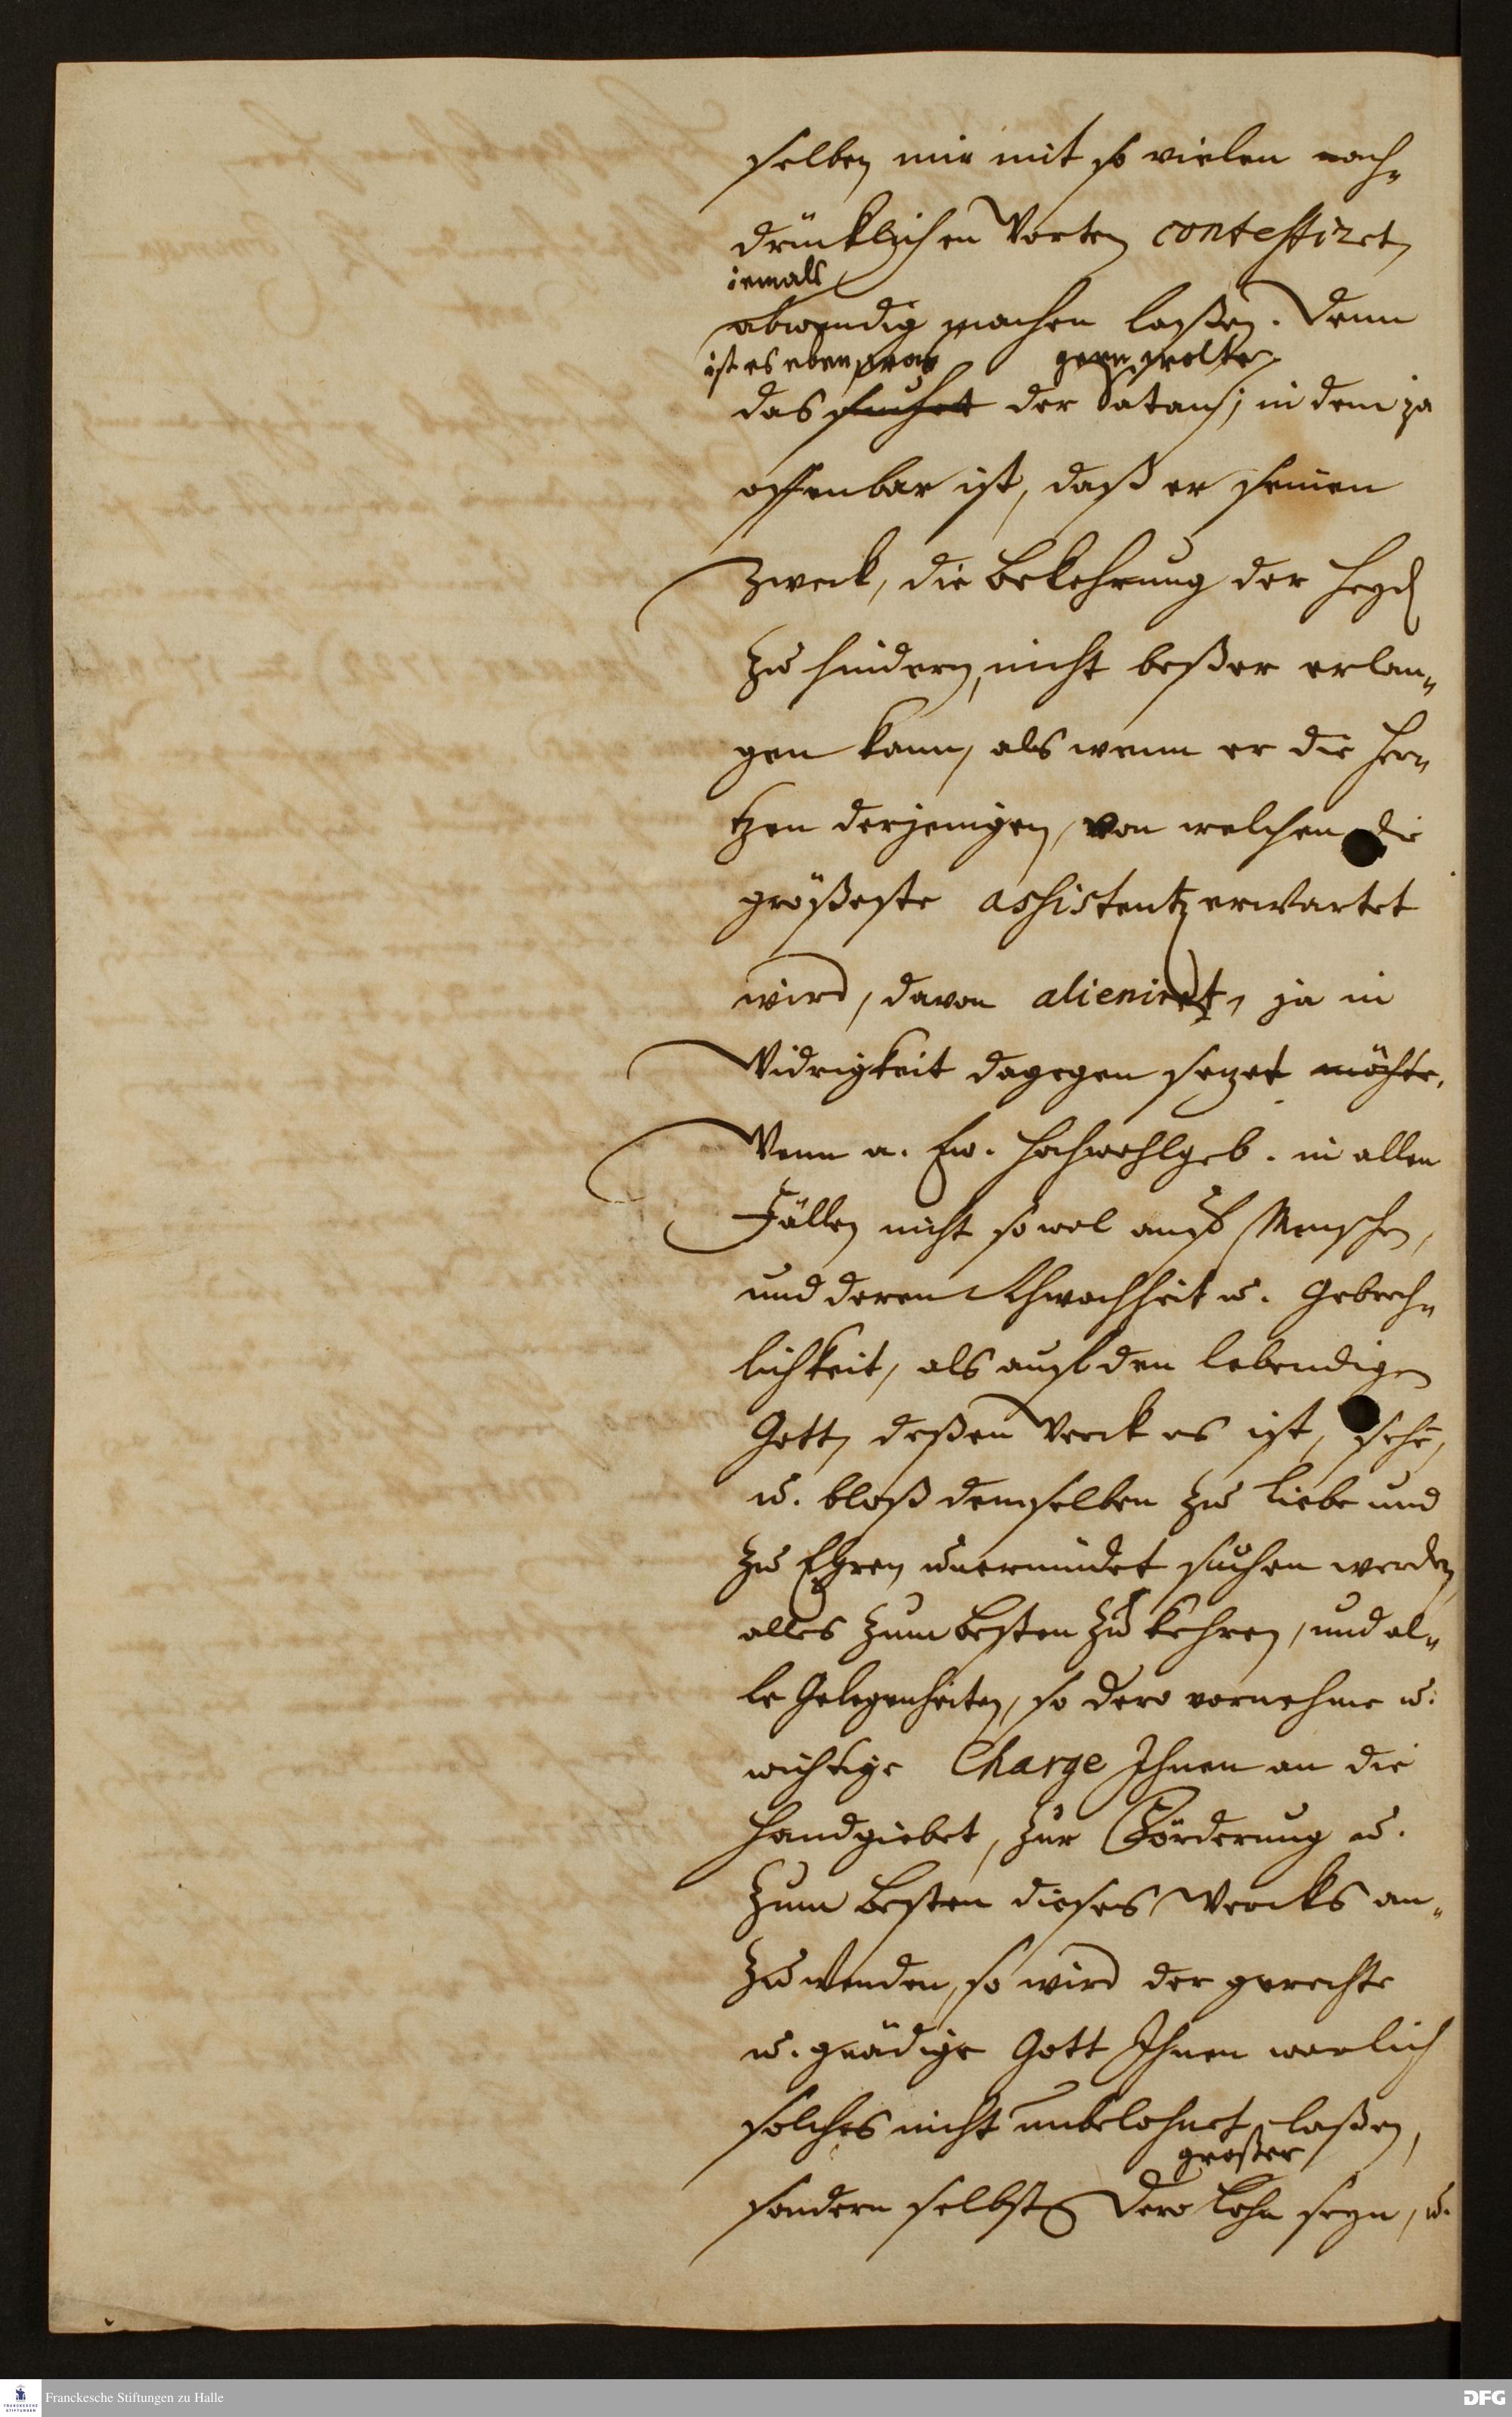 selben mir mit so vielen nach-
drücklichen Worten contestiret,
iemals
abwendig machen laßen. Denn
ist es eben, was gern wolte
das suchet der Satan; in dem ja
offenbar ist, daß er seinen
Zweck, die Bekehrung der Heyd
zu hindern, nicht beßer erlan-
gen kann, als wenn er die Her-
tzen derjenigen, von welchen die
größeste assistentz erwartet
wird, davon alieniret, ja in
Widrigkeit dagegen setzet möchte.
Wenn a. Ew. Hochwohlgeb. in allen
Fällen nicht so wol auf Menschen,
und deren Schwachheit u. Gebrech-
lichkeit, als auf den lebendigen
Gott, deßen Werck es ist, sehen,
u. bloß demselben zu Liebe und
zu Ehren unermüdet suchen werden,
alles zum besten zu kehren, und al-
le Gelegenheiten, so dero vornehme u.
wichtige Charge Ihnen an die
Hand giebet, zur Förderung u.
zum besten dieses Wercks an-
zuwenden, so wird der gerechte
u. gnädige Gott Ihnen warlich
solches nicht unbelohnet laßen,
großer
sondern selbst Dero Lohn seyn, u.
Franckesche Stiftungen zu Halle
DFG